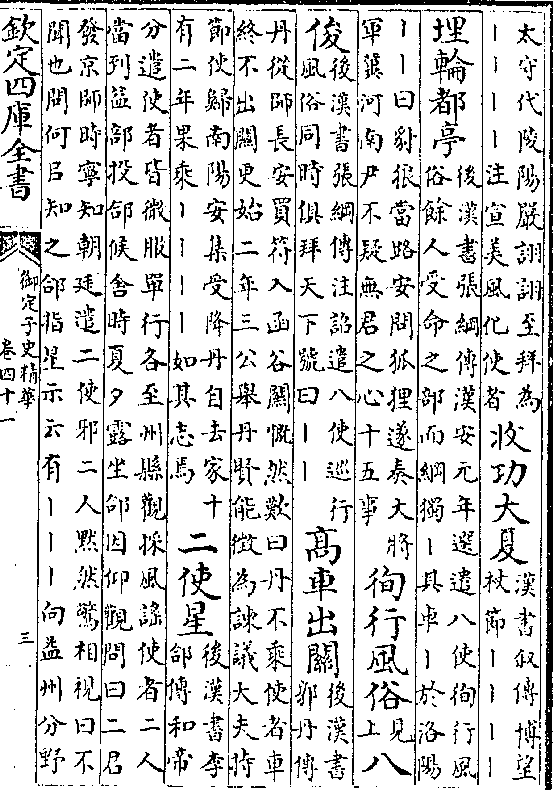 太守代陵陽嚴詡詡至拜為
丨丨丨丨注宣美風化使者
收功大夏
漢書叙傳博望
杖節丨丨丨丨
埋輪都亭
後漢書張綱傳漢安元年選遣八使徇行風
俗餘人受命之部而綱獨丨其車丨於洛陽
丨丨曰豺狼當路安問狐狸遂奏大將
軍冀河南尹不疑無君之心十五事
徇行風俗
見上
八
俊
後漢書張綱傳注詔遣八使巡行
風俗同時俱拜天下號曰丨丨
高車出關
後漢書
郭丹傳
丹從師長安買符入函谷關慨然歎曰丹不乘使者車
終不出關更始二年三公舉丹賢能徵為諫議大夫持
節使歸南陽安集受降丹自去家十
有二年果乘丨丨丨丨如其志焉
二使星
後漢書李
郃傳和帝
分遣使者皆微服單行各至州縣觀採風謠使者二人
當到益部投郃候舍時夏夕露坐郃因仰觀問曰二君
發京師時寧知朝廷遣二使邪二人默然驚相視曰不
聞也問何㠯知之郃指星示云有丨丨丨向益州分野
欽定四庫全書
御定子史精華
卷四十一
三